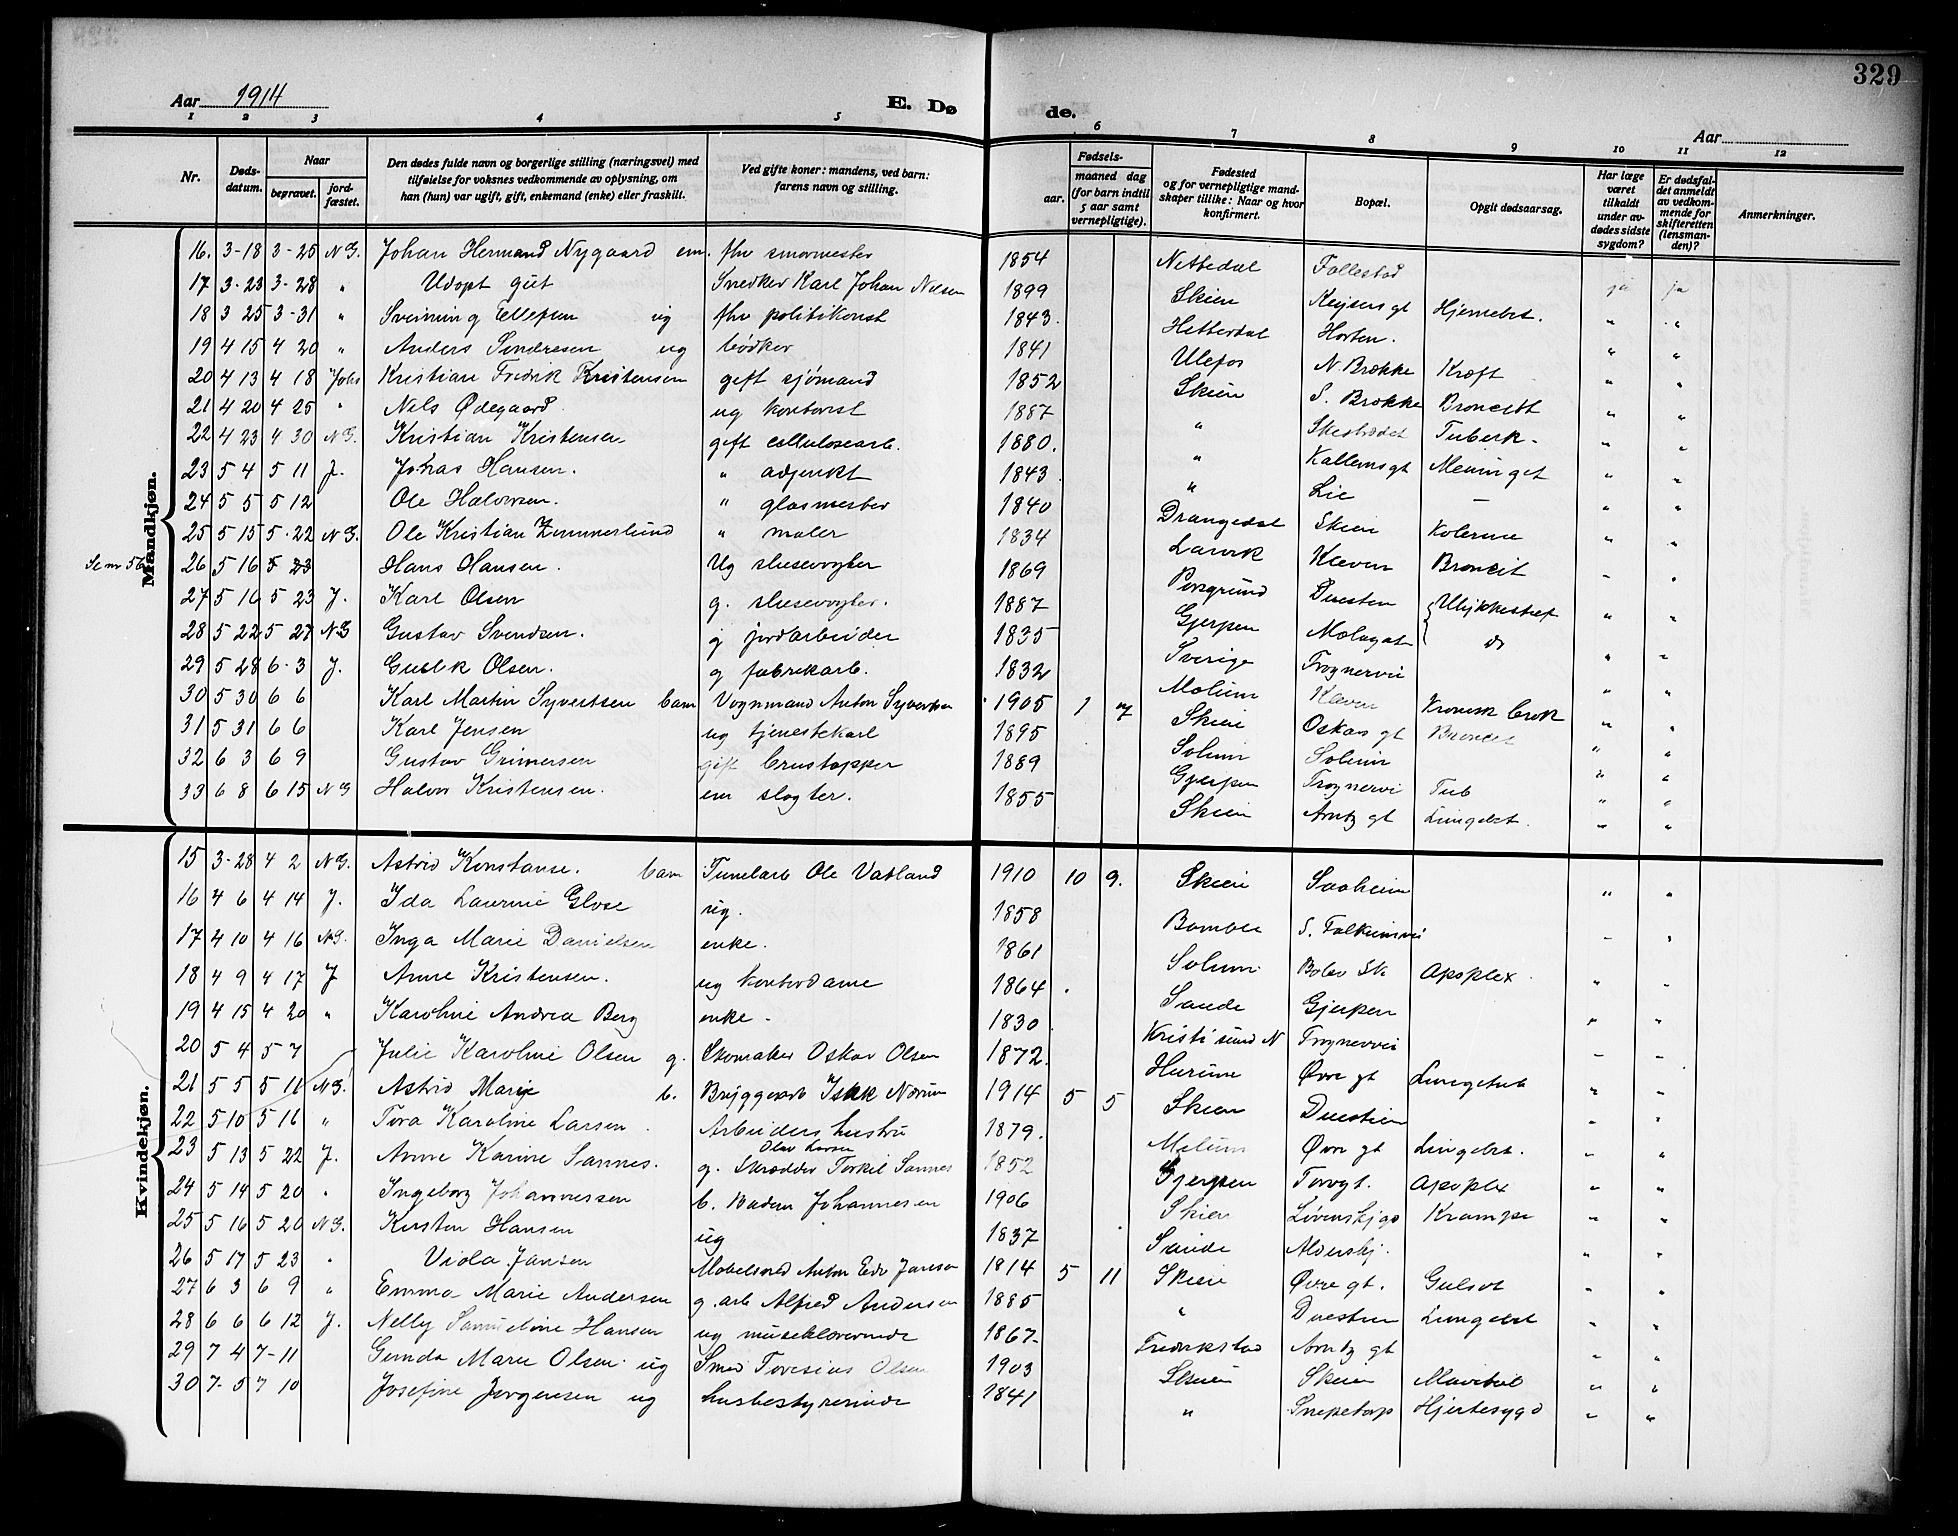 329
Aar 1914
E. Dø de.
Aar
1 2 3 4 5 6 7 8 9 10 11 12
Nr.
Døds-datum.
Naar
begravet.
jord-fæstet.
Den dødes fulde navn og borgerlige stilling (næringsvei) med tilføielse for voksnes vedkommende av oplysning, om han (hun) var ugift, gift, enkemand (enke) eller fraskilt.
Ved gifte koner: mandens, ved barn: farens navn og stilling.
Fødsels-
aar.
maaned dag (for barn indtil 5 aar samt vernepligtige).
Fødested og for vernepligtige mandskaper tillike: Naar og hvor konfirmert.
Bopæl.
Opgit dødsaarsag.
Har læge været tilkaldt under avdødes sidste sygdom?
Er dødsfaldet anmeldt av vedkommende for skifteretten (lensmanden)?
Anmerkninger.
Mandkjøn.
16. 3-18 3-25 N G. Johan Hermand Nygaard em. fhv smørmester 1854 Nittedal Follestad
17 3-23 3-28 " Udøpt gut Snedker Karl Johan Nilsen 1899 Skien Keysers gt Hjernebet. ja ja
18 3 25 3-31 " Sveinung Tellefsen ug fhv politikonst 1843. Hitterdal Horten. " "
19 4 15 4 20 " Anders Sondresen ug bødker 1841 Ulefos N Brække Kræft " "
20 4 13 4 18 Johs Kristian Fredrik Kristensen gift sjømand 1852 Skien S. Brække Broncitt " "
21 4 20 4 25 " Nils Ødegaard. ug kontorist 1887 " Tuberk. " "
22 4 23 4 30 N G. Kristian Kristensen gift cellulosearb. 1880. " Kallevns gt " "
23 5 4 5 11 J. Johas Hansen. " adjunkt 1843 " Lie – " "
24 5 5 5 12 Ole Halvorsen. " glasmester 1840 Drangedal Skien " "
25 5 15 5-22 N G. Ole Kristian Zimmerlund " maler 1834 Larvik Kleven Broncit " "
Se nr 56
26 5 16 5 23 Hans Hansen. Ug slusevogter 1869 Porsgrund Duesten Ulykkestilf " "
27 5 16 5 23 J. Karl Olsen g. slusevogter. 1887 Gjerpen do " "
28 5 22 5 27 N G Gustav Svendsen. g jordarbeider 1835 Sverige Frognervei " "
29 5 28 6-3 J. Gullik Olsen. g fabrikarb. 1832 Molum Kleven Kronisk " "
30 5 30 6 6 Karl Martin Syvertsen barn Vognmand Anton Syvertsen 1905 1 Skien Oskars gt Broncit " "
31 5 31 6 6 Karl Jensen ug tjenestekarl 1895 Solum Solum " "
32 6 3 6 9 Gustav Gunnersen gift 1889 Gjerpen Frognervei Tub " "
33 6 8 6 15 N G Halvor Kristensen. em slagter. 1855 Skien Arntz gt Lungebet. " "
Kvindekjøn.
15 3-28 4 2 N G. Astrid Konstanse. barn Tunelarb Ole Vatland 1910 10 9. Skien Saaheim " "
16 4 6 4 14 J. Ida Laurine Glose ug. 1858 Bamble S. Falkumsvei " "
17 4 10 4 16 N G. Inga Marie Danielsen enke. 1861 Solum Bolev Sk Apoplex " "
18 4 9 4 17 J Anne Kristensen. ug kontordame 1864. Sande Gjerpen " "
19 4 15 4 20 " Karoline Andrea Berg enke. 1830 Kristisund N Frognervei " "
20 5 4 5 7 Julie Karoline Olsen g. Skomaker Oskar Olsen 1872. Hurum Øvre gt Lungetub " "
21 5 5 5 11 N G. Astrid Marie b. Bryggearb Isak 1914 5 5 Skien Duestien " "
22 5 10 5 16 " Tora Karoline Larsen Arbeiders hustru Olav Larsen 1879. Melum Øvre gt Lungebet. " "
23 5 13 5 22 J. Anne Karine Sannes. g. Skrædder Torkil Sannes 1852 Gjerpen Torvgt. Apoplex " "
24 5 14 5 20 " Ingeborg Johannessen b. Johannesen 1906 Skien Løvenskjgs Krampe " "
25 5 16 5 20 N G. Kirsten Hansen ug 1837 Sande Alderskj. " "
26 5 17 5 23 " Viola Jansen Møbelsned Anton Edv Jansen 1814 5 11 Skien Øvre gt. Gulsot " "
27 6 3 6 9 " Emma Marie Andersen g. arb Alfred Andersen 1885 " Duestien Lungebet " "
28 6 6 6 12 J. Nelly Samueline Hansen ug musiklærerinde 1867- Fredrikstad Arntz gt " "
29 7 4 7-11 Gunda Marie Olsen ug Smed Toresius Olsen 1903 Skien Skien " "
30 7-5 7 10 Josefine Jørgensen ug husbestyrerinde 1841 " Snipetorp Hjertesygd " "